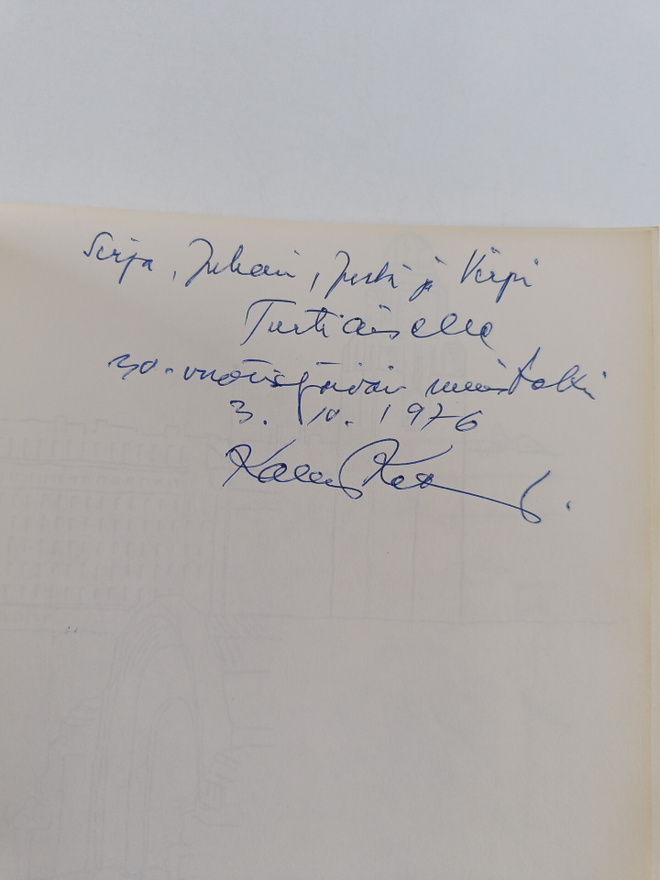 Seija, Juhani, Jyrki ja Virpi
Turtiaiselle
30-vuotispäivän muistoksi
3. 10. 1976
Kalle